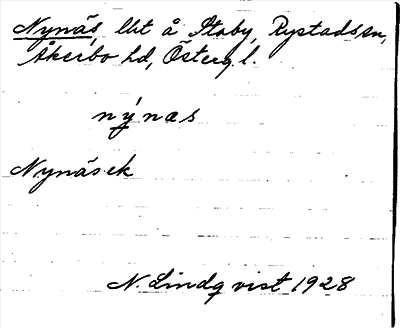 Nynäs lht å Staby, Rystads sn,
Åkerbo hd, Österg. l.
nýnas
Nynäs ek
N. Lindqvist 1928